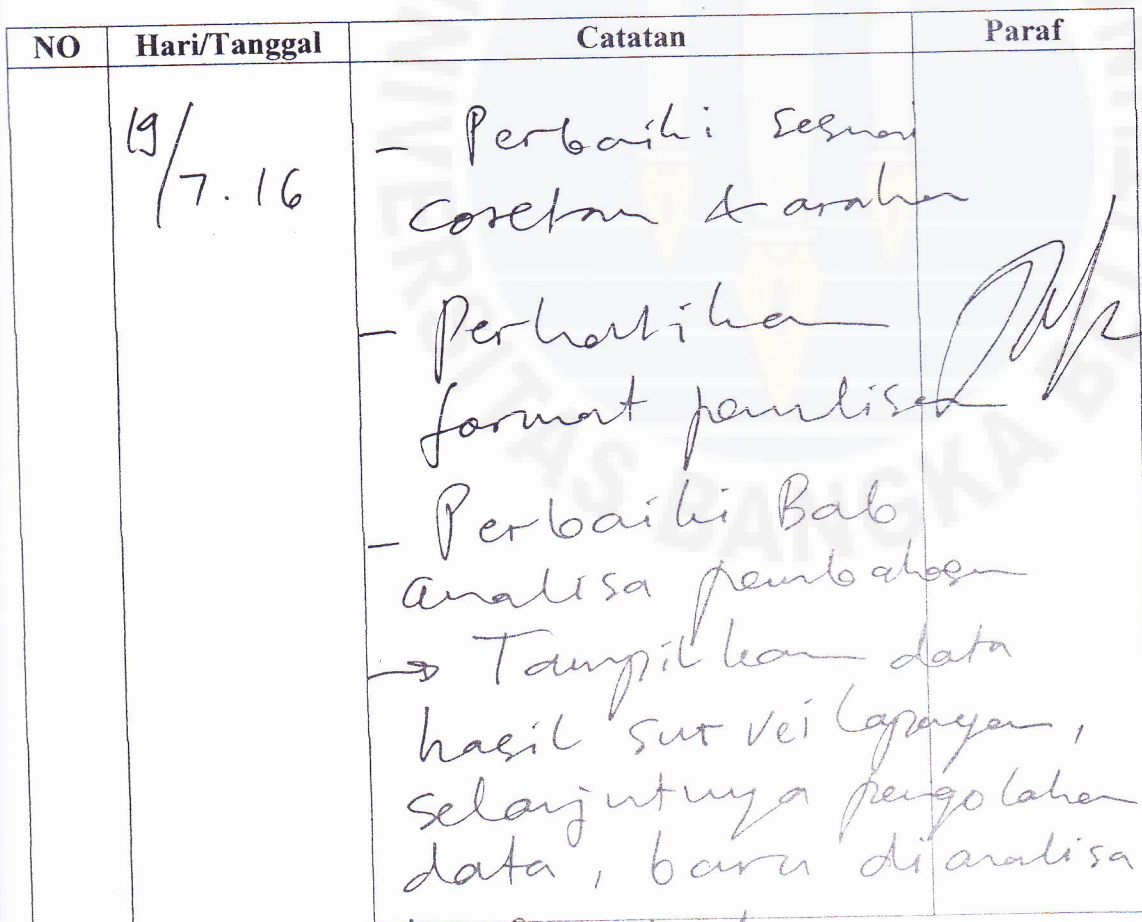 NO Hari/Tanggal Catatan Paraf
19/7.16 - Perbaiki sesuai
coretan & arahan
- Perhatikan
format penulisan
- Perbaiki Bab
analisa pembahasan
→ Tampilkan data
hasil survei lapangan,
selanjutnya pengolahan
data, baru dianalisa
UNIVERSITAS BANGKA